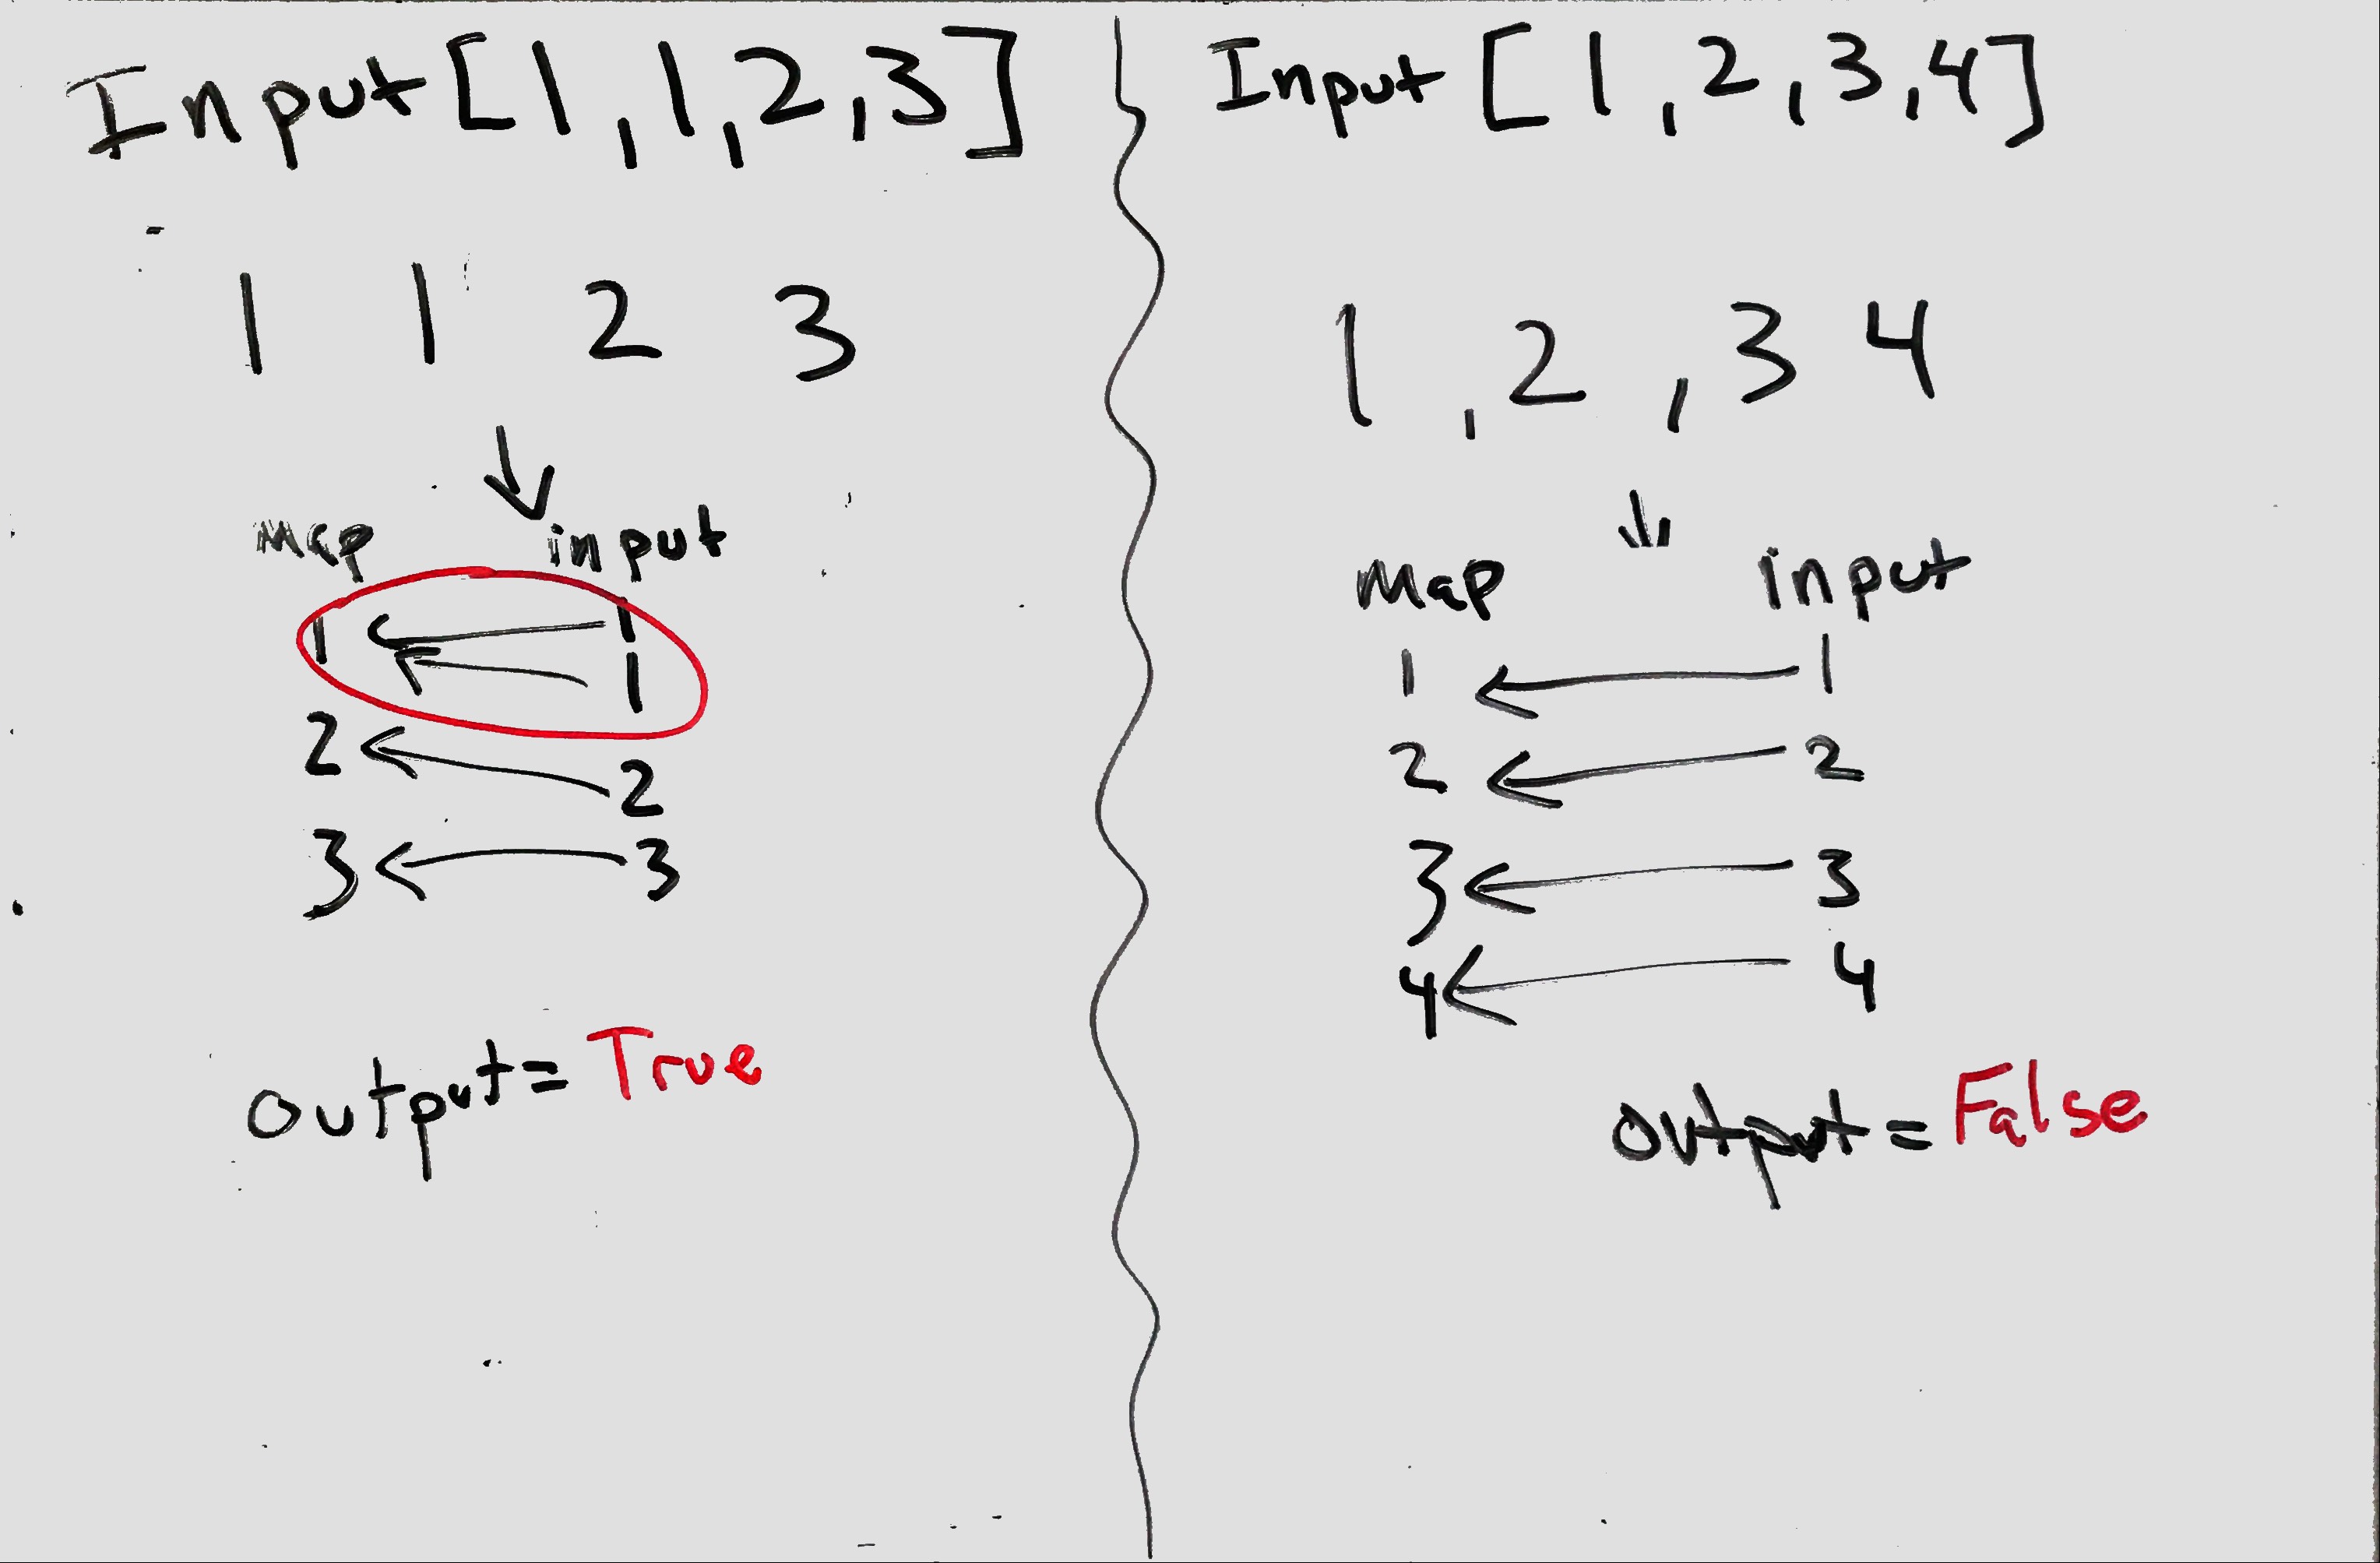 Input[1,1,2,3]
1 1 2 3
Map input
1 1
1
2 2
3 3
Output= True
Input [1,2,3,4]
1,2,3 4
Map input
1 1
2 2
3 3
4 4
Output= False